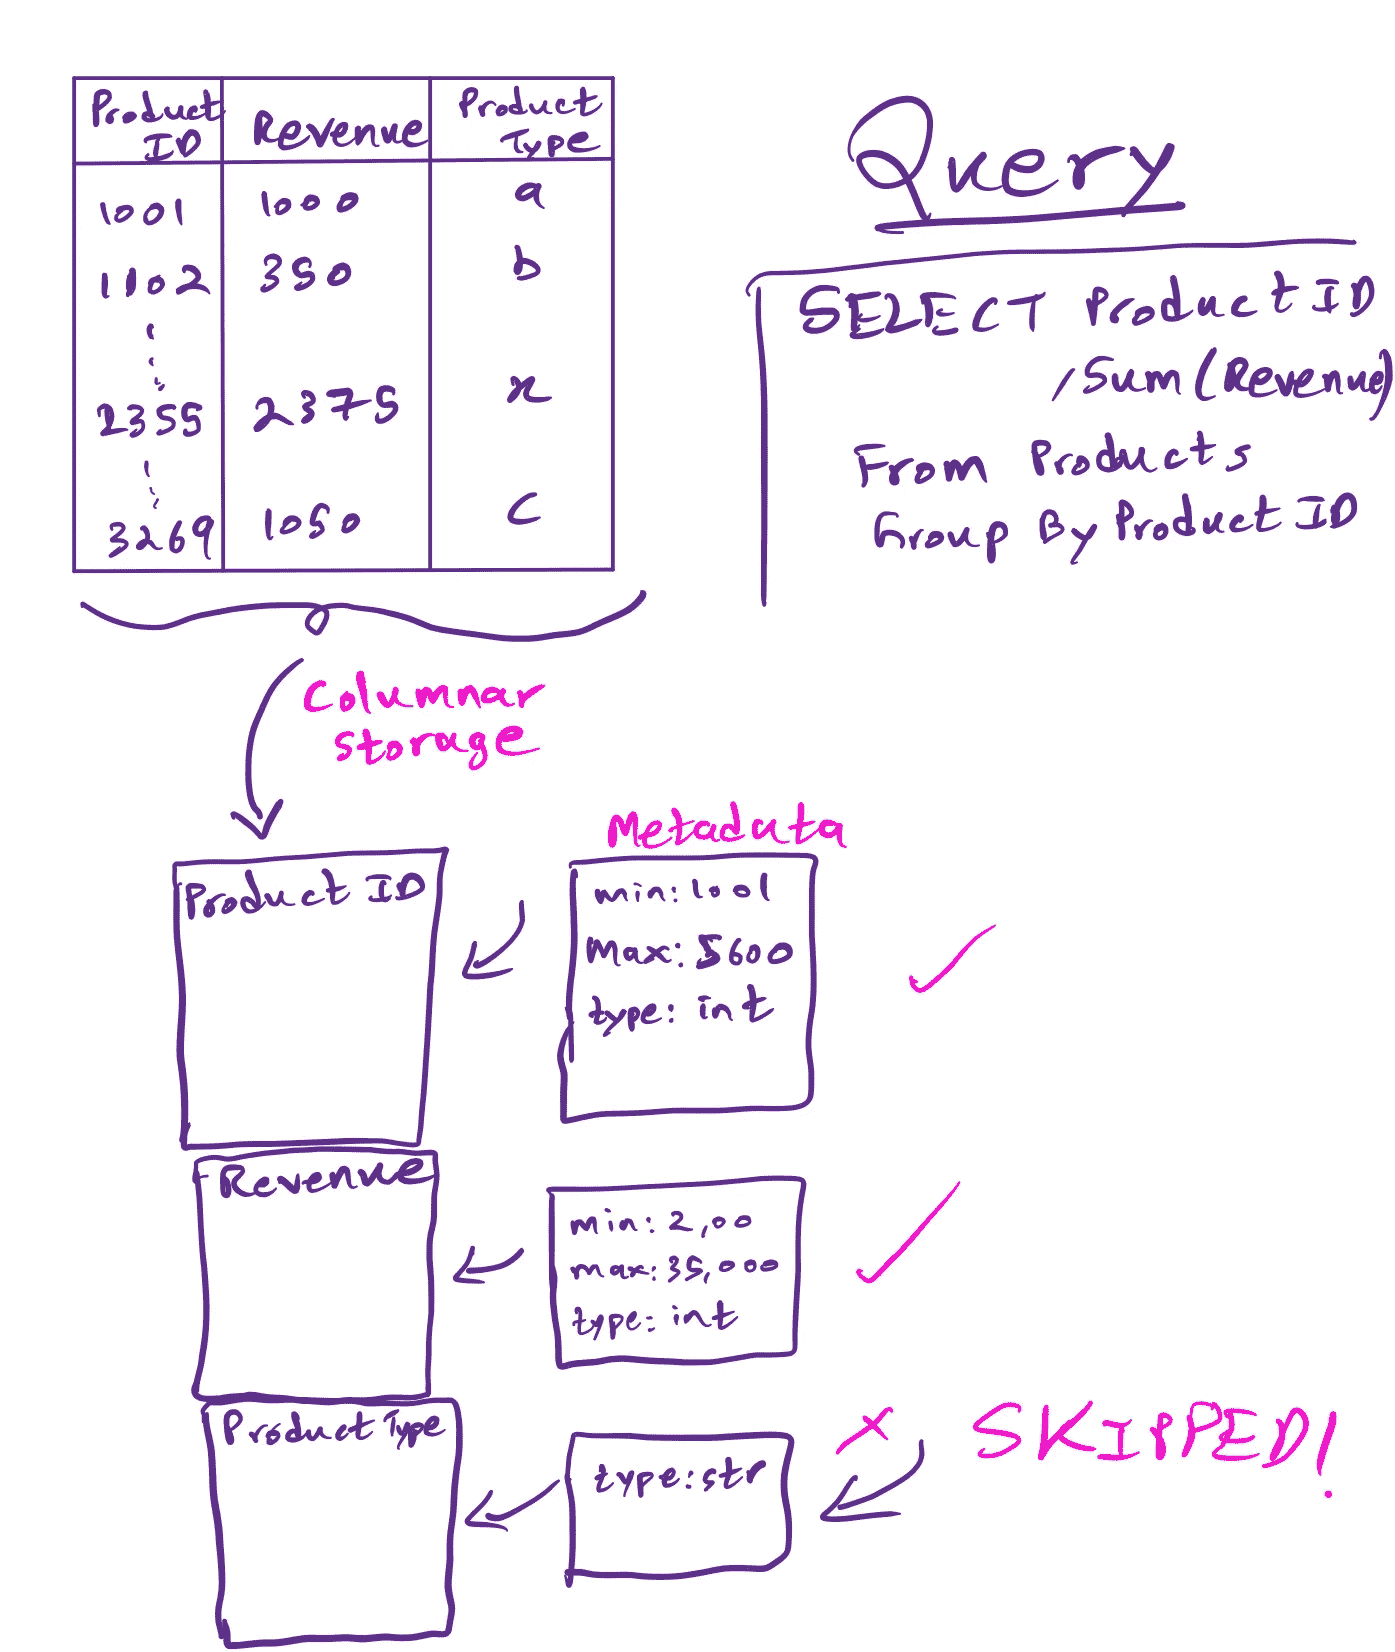 Product ID
Revenue
Product Type
1001 1000 a
1102 350 b
2355 2375 x
3269 1050 c
Query
SELECT Product ID
, Sum (Revenue)
From Products
Group By Product ID
Columnar
storage
Metadata
Product ID
min: 1001
Max: 5600
type: int
Revenue
min: 2,00
max: 35,000
type: int
Product Type
type: str
x SKIPPED!